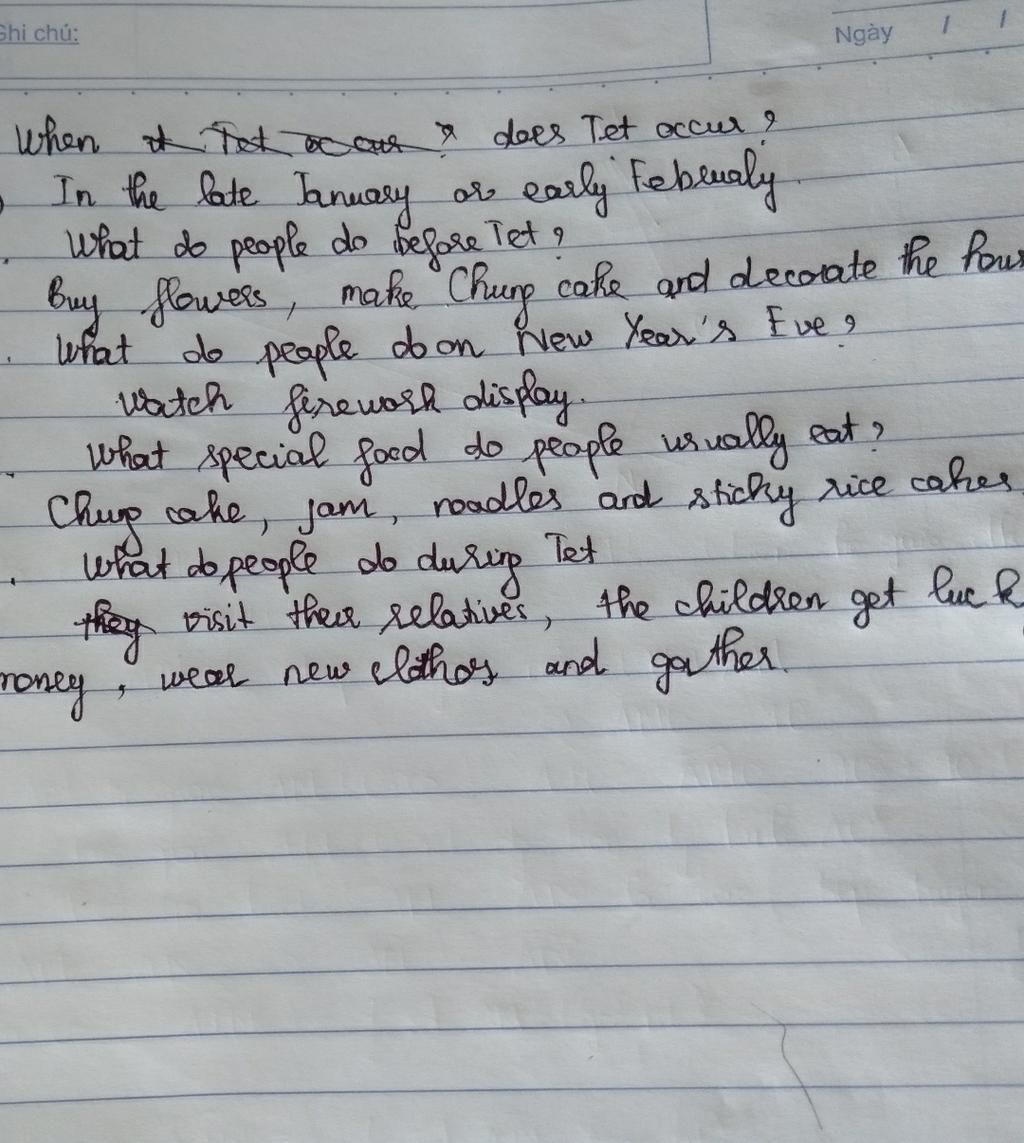 Ghi chú:
Ngày / /
When it Tet occur ? does Tet occur ?
In the late January or early Februaly
What do people do before Tet ?
Buy flowers, make Chung cake and decorate the hous
What do people do on New Year's Eve ?
Watch firework display.
What special food do people usually eat ?
Chung cake, jam, roadles and sticky rice cakes.
What do people do during Tet
they visit their relatives, the children get luck
money, wear new clothes and gather.